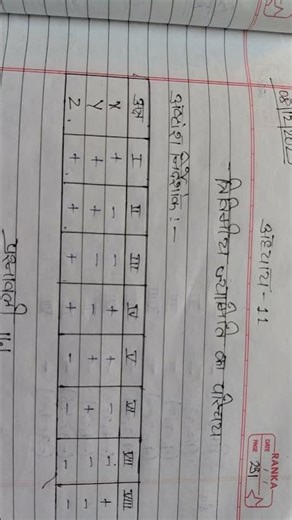 RANKA
DATE / /
PAGE
08/12/202
अध्याय - 11
- त्रिविमीय ज्यामिति का परिचय
अष्टांश निर्देशांक :-
अक्ष I II III IV V VI VII VIII
X + - - + + - - +
Y + + - - + + - -
Z. + + + + - - - -
प्रश्नावली 11.1